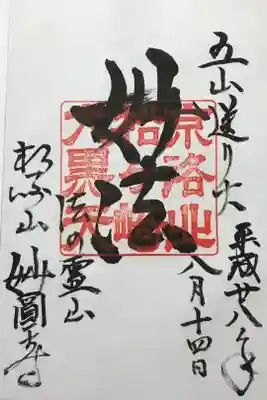 五山送り火
平成廿八年
八月十四日
妙法
京洛北
松ヶ崎
大黒天
法の霊山
松崎山
妙圓寺